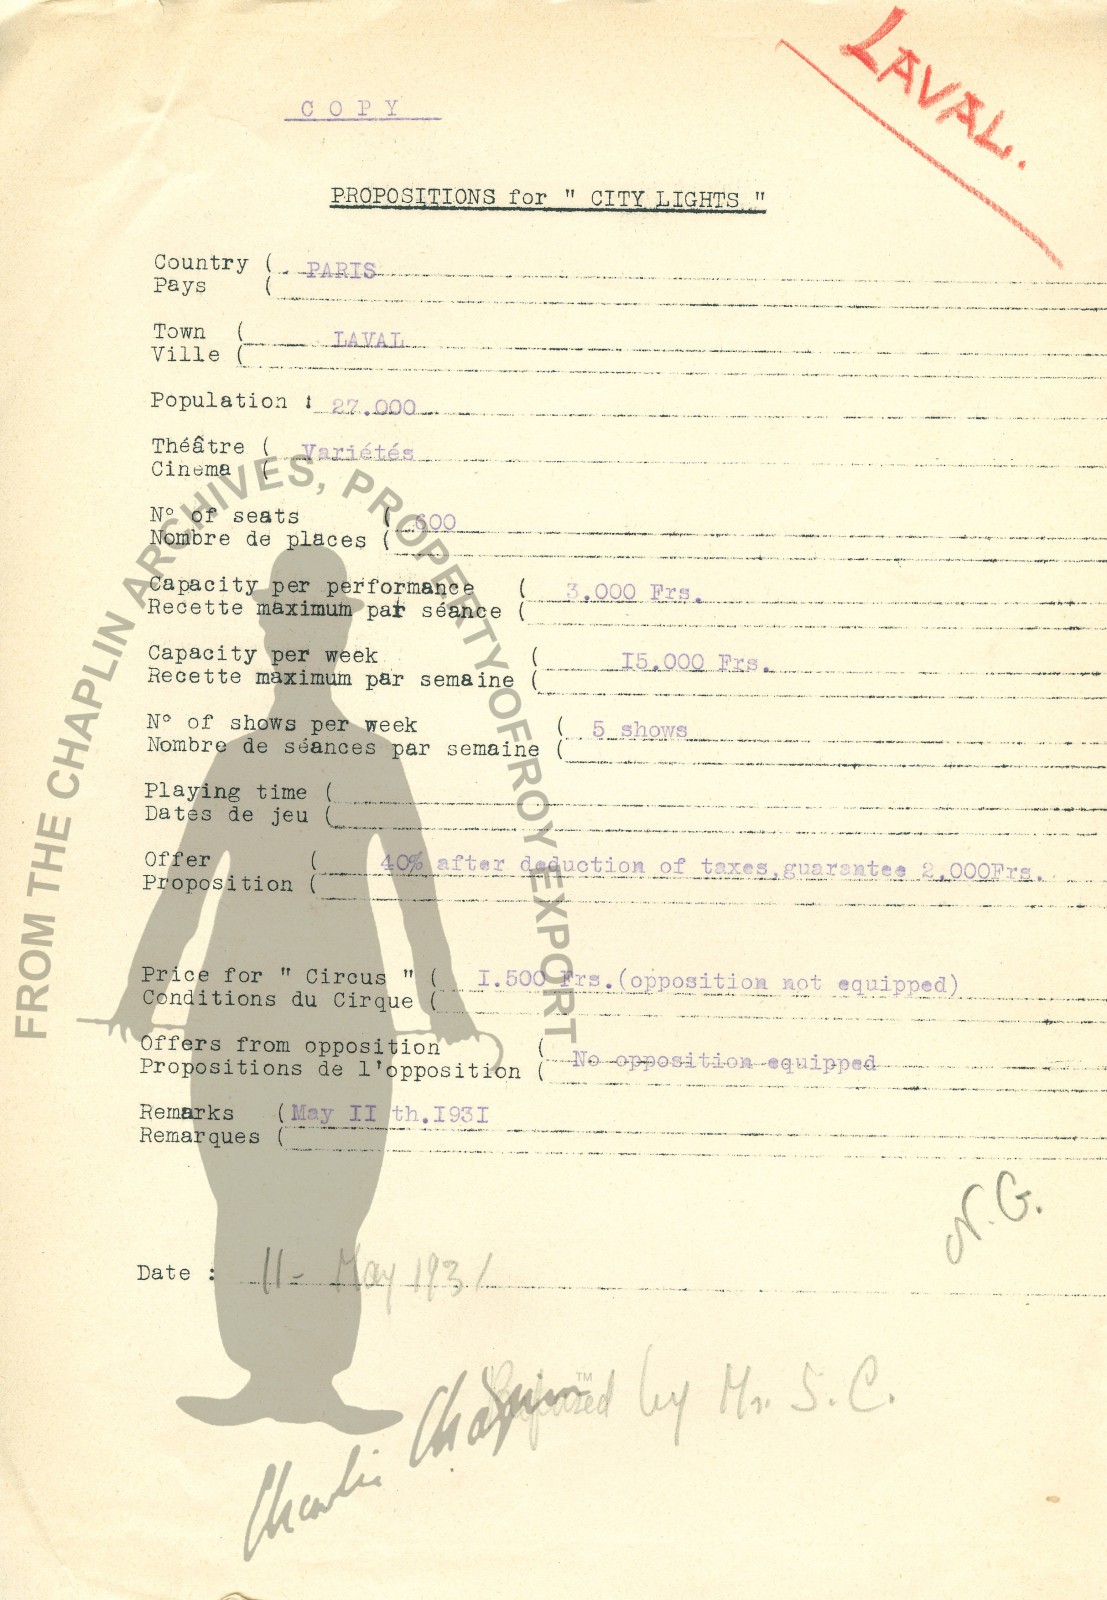 LAVAL.
C O P Y
PROPOSITIONS for " CITY LIGHTS "
Country ( PARIS
Pays (
Town ( LAVAL
Ville (
Population : 27.000
Théâtre ( Variétés
Cinema (
N° of seats ( 600
Nombre de places (
Capacity per performance ( 3.000 Frs.
Recette maximum par séance (
Capacity per week ( I5.000 Frs.
Recette maximum par semaine (
N° of shows per week ( 5 shows
Nombre de séances par semaine (
Playing time (
Dates de jeu (
Offer ( 40% after deduction of taxes,guarantee 2.000Frs.
Proposition (
Price for " Circus " ( I.500 Frs.(opposition not equipped)
Conditions du Cirque (
Offers from opposition ( No opposition equipped
Propositions de l'opposition (
Remarks ( May II th.I93I
Remarques (
N.G.
Date : 11- May 1931
by Mr. S.C.
Charlie Chaplin TM
FROM THE CHAPLIN ARCHIVES, PROPERTY OF ROY EXPORT